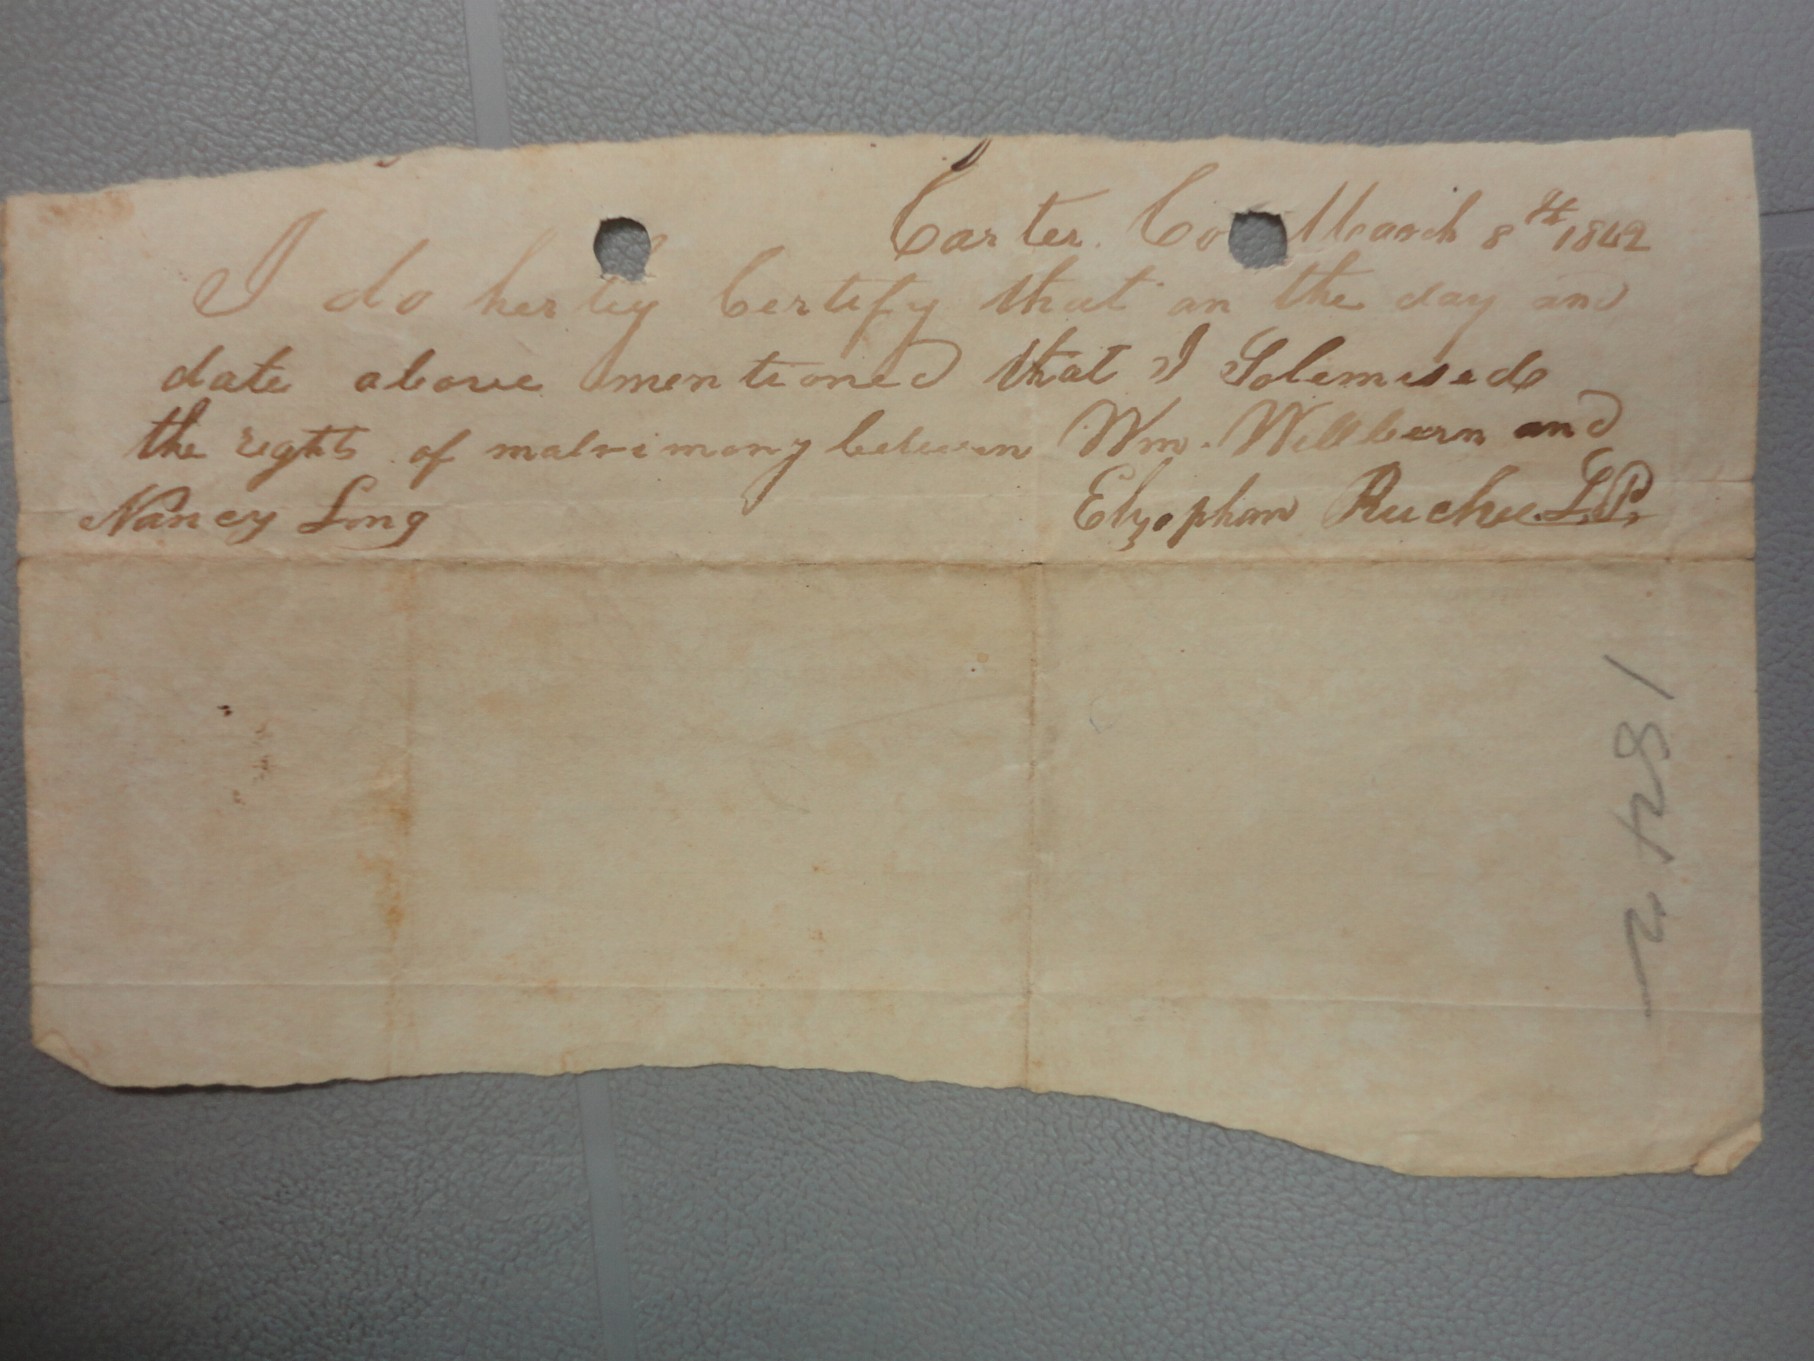 Carter Co March 8th 1842
I do herby Certify that on the day and
date above mentioned that I Solemised
the rights of matrimony between Wm. Willburn and
Nancy Long Elzophan Ruche J.P.
1842